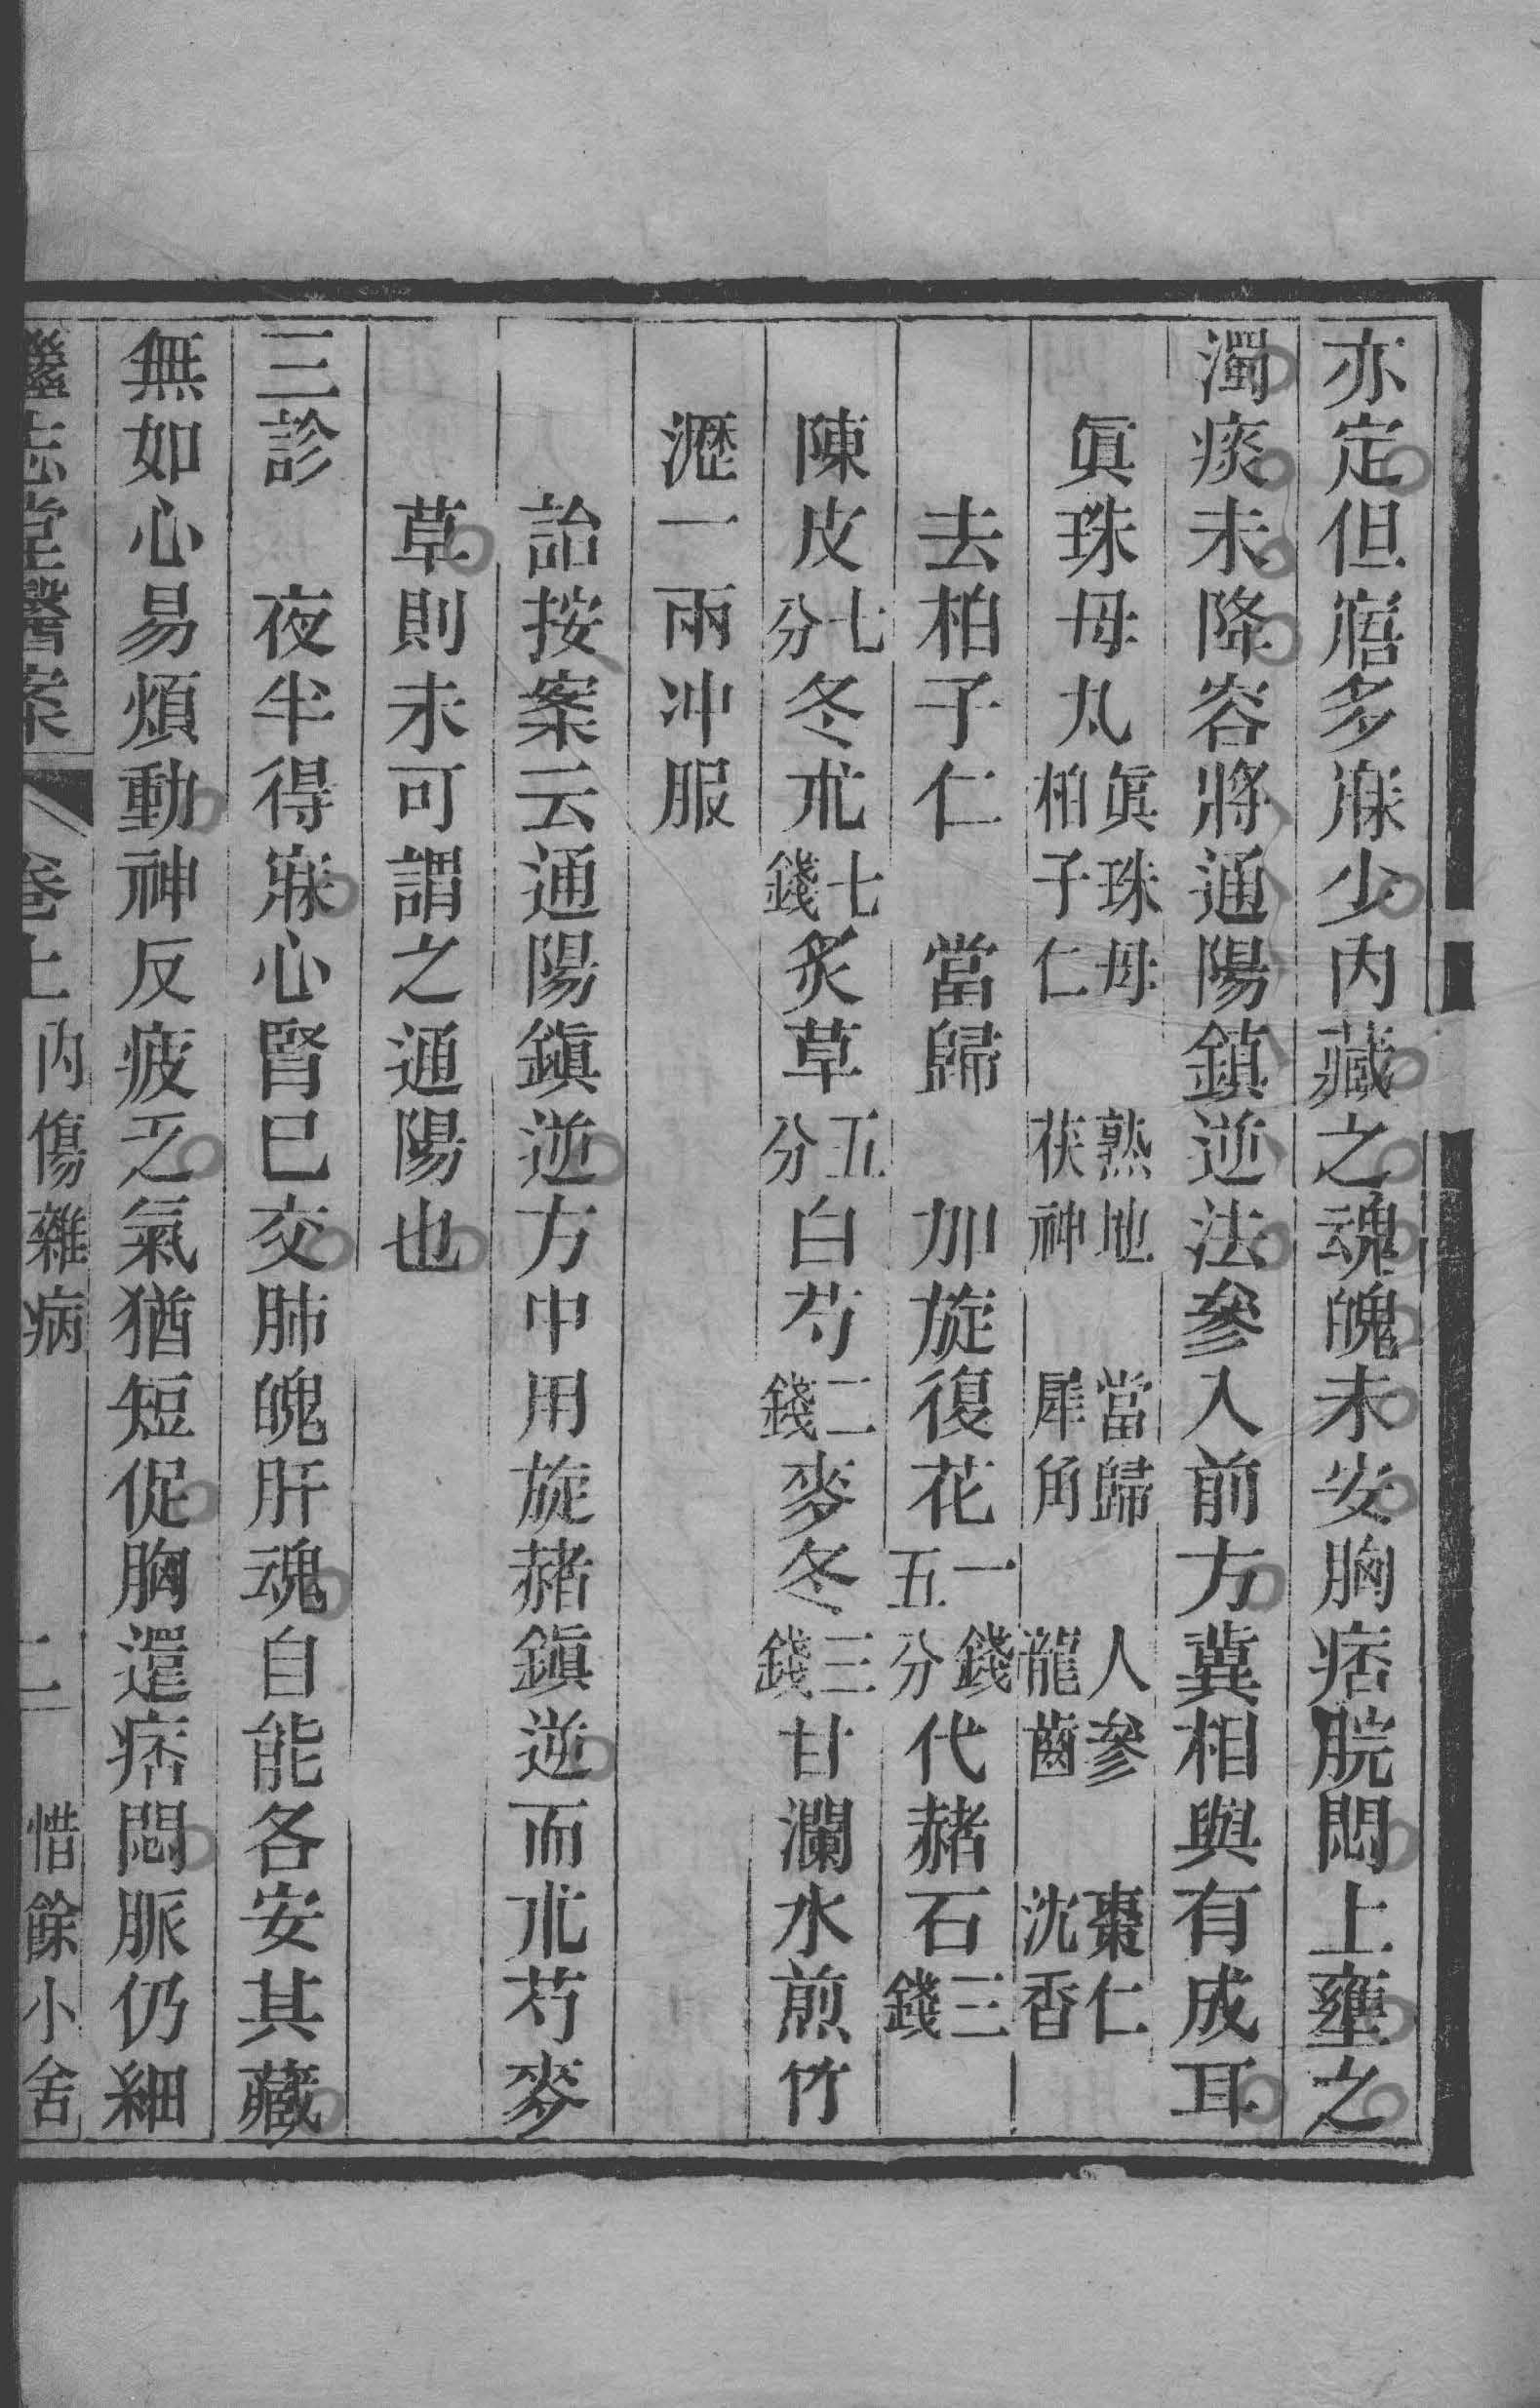 亦定但寤多寐少內藏之魂魄未安胸痞脘悶上壅之
濁痰未降容將通陽鎮逆法參入前方冀相與有成耳
眞珠母丸眞珠母柏子仁熟地茯神當歸犀角人參龍齒棗仁沈香
去柏子仁 當歸 加旋復花一錢五分代赭石三錢
陳皮七分冬朮七錢炙草五分白芍二錢麥冬三錢甘瀾水煎竹
瀝一兩冲服
詒按案云通陽鎭逆方中用旋赭鎭逆而朮芍麥
草則未可謂之通陽也
三診 夜半得寐心腎已交肺魄肝魂自能各安其藏
無如心易煩動神反疲乏氣猶短促胸還痞悶脈仍細
繼志堂醫案 卷上 內傷雜病 二 惜餘小舍